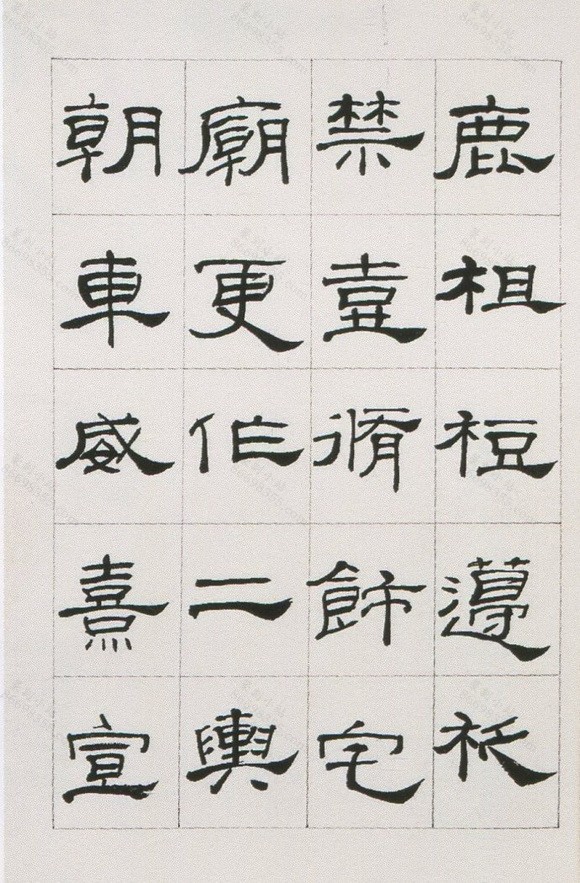 鹿柤梪籩柉
禁壺脩飾宅
廟更作二輿
朝車威熹宣